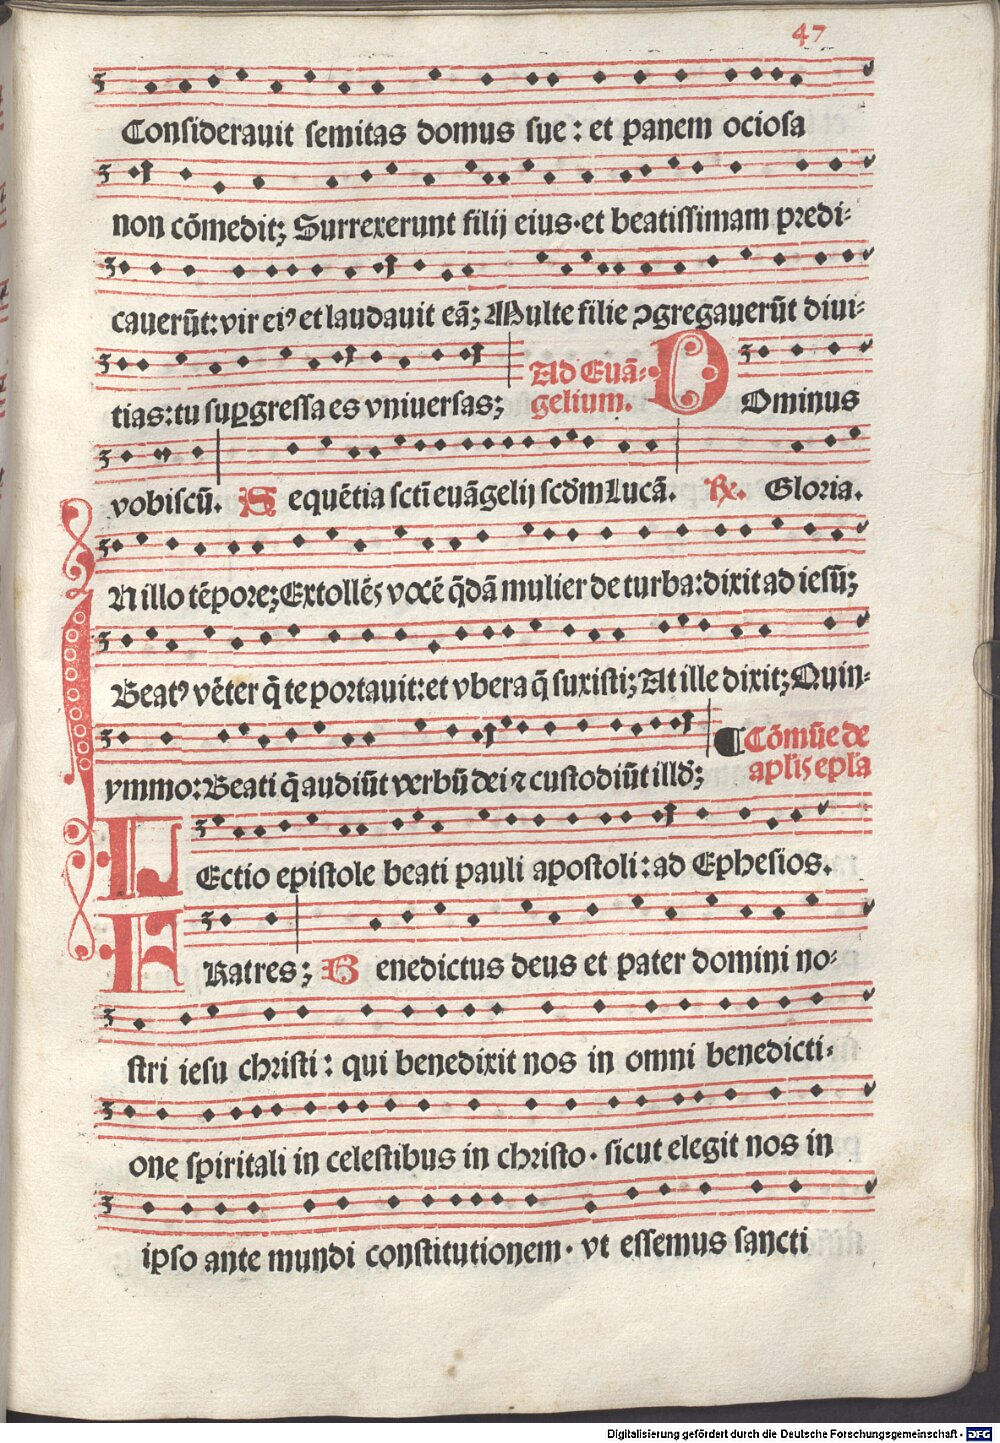 47
Considerauit semitas domus sue : et panem ociosa
non cōmedit; Surrexerunt filij eius · et beatissimam predi⸗
cauerūt: vir eiꝰ et laudauit eā; Multe filie ↄgregauerūt diui⸗
tias: tu suꝑgressa es vniuersas; Ad Euā⸗
gelium. DOminus
vobiscū. Sequētia sctī euāgelij scd̄m Lucā. ℞. Gloria.
IN illo tēpore; Extollēs vocē q̄dā mulier de turba: dixit ad iesū;
Beatꝰ vēter q̄ te portauit: et vbera q̄ suxisti; At ille dixit; Quin⸗
ymmo: Beati q̄ audiūt verbū dei ⁊ custodiūt illd̄; ¶ Cōmūe de
apl̄is epl̄a
LEctio epistole beati pauli apostoli: ad Ephesios.
FRatres; Benedictus deus et pater domini no⸗
stri iesu christi : qui benedixit nos in omni benedicti⸗
one spiritali in celestibus in christo · sicut elegit nos in
ipso ante mundi constitutionem · vt essemus sancti
Digitalisierung gefördert durch die Deutsche Forschungsgemeinschaft - DFG